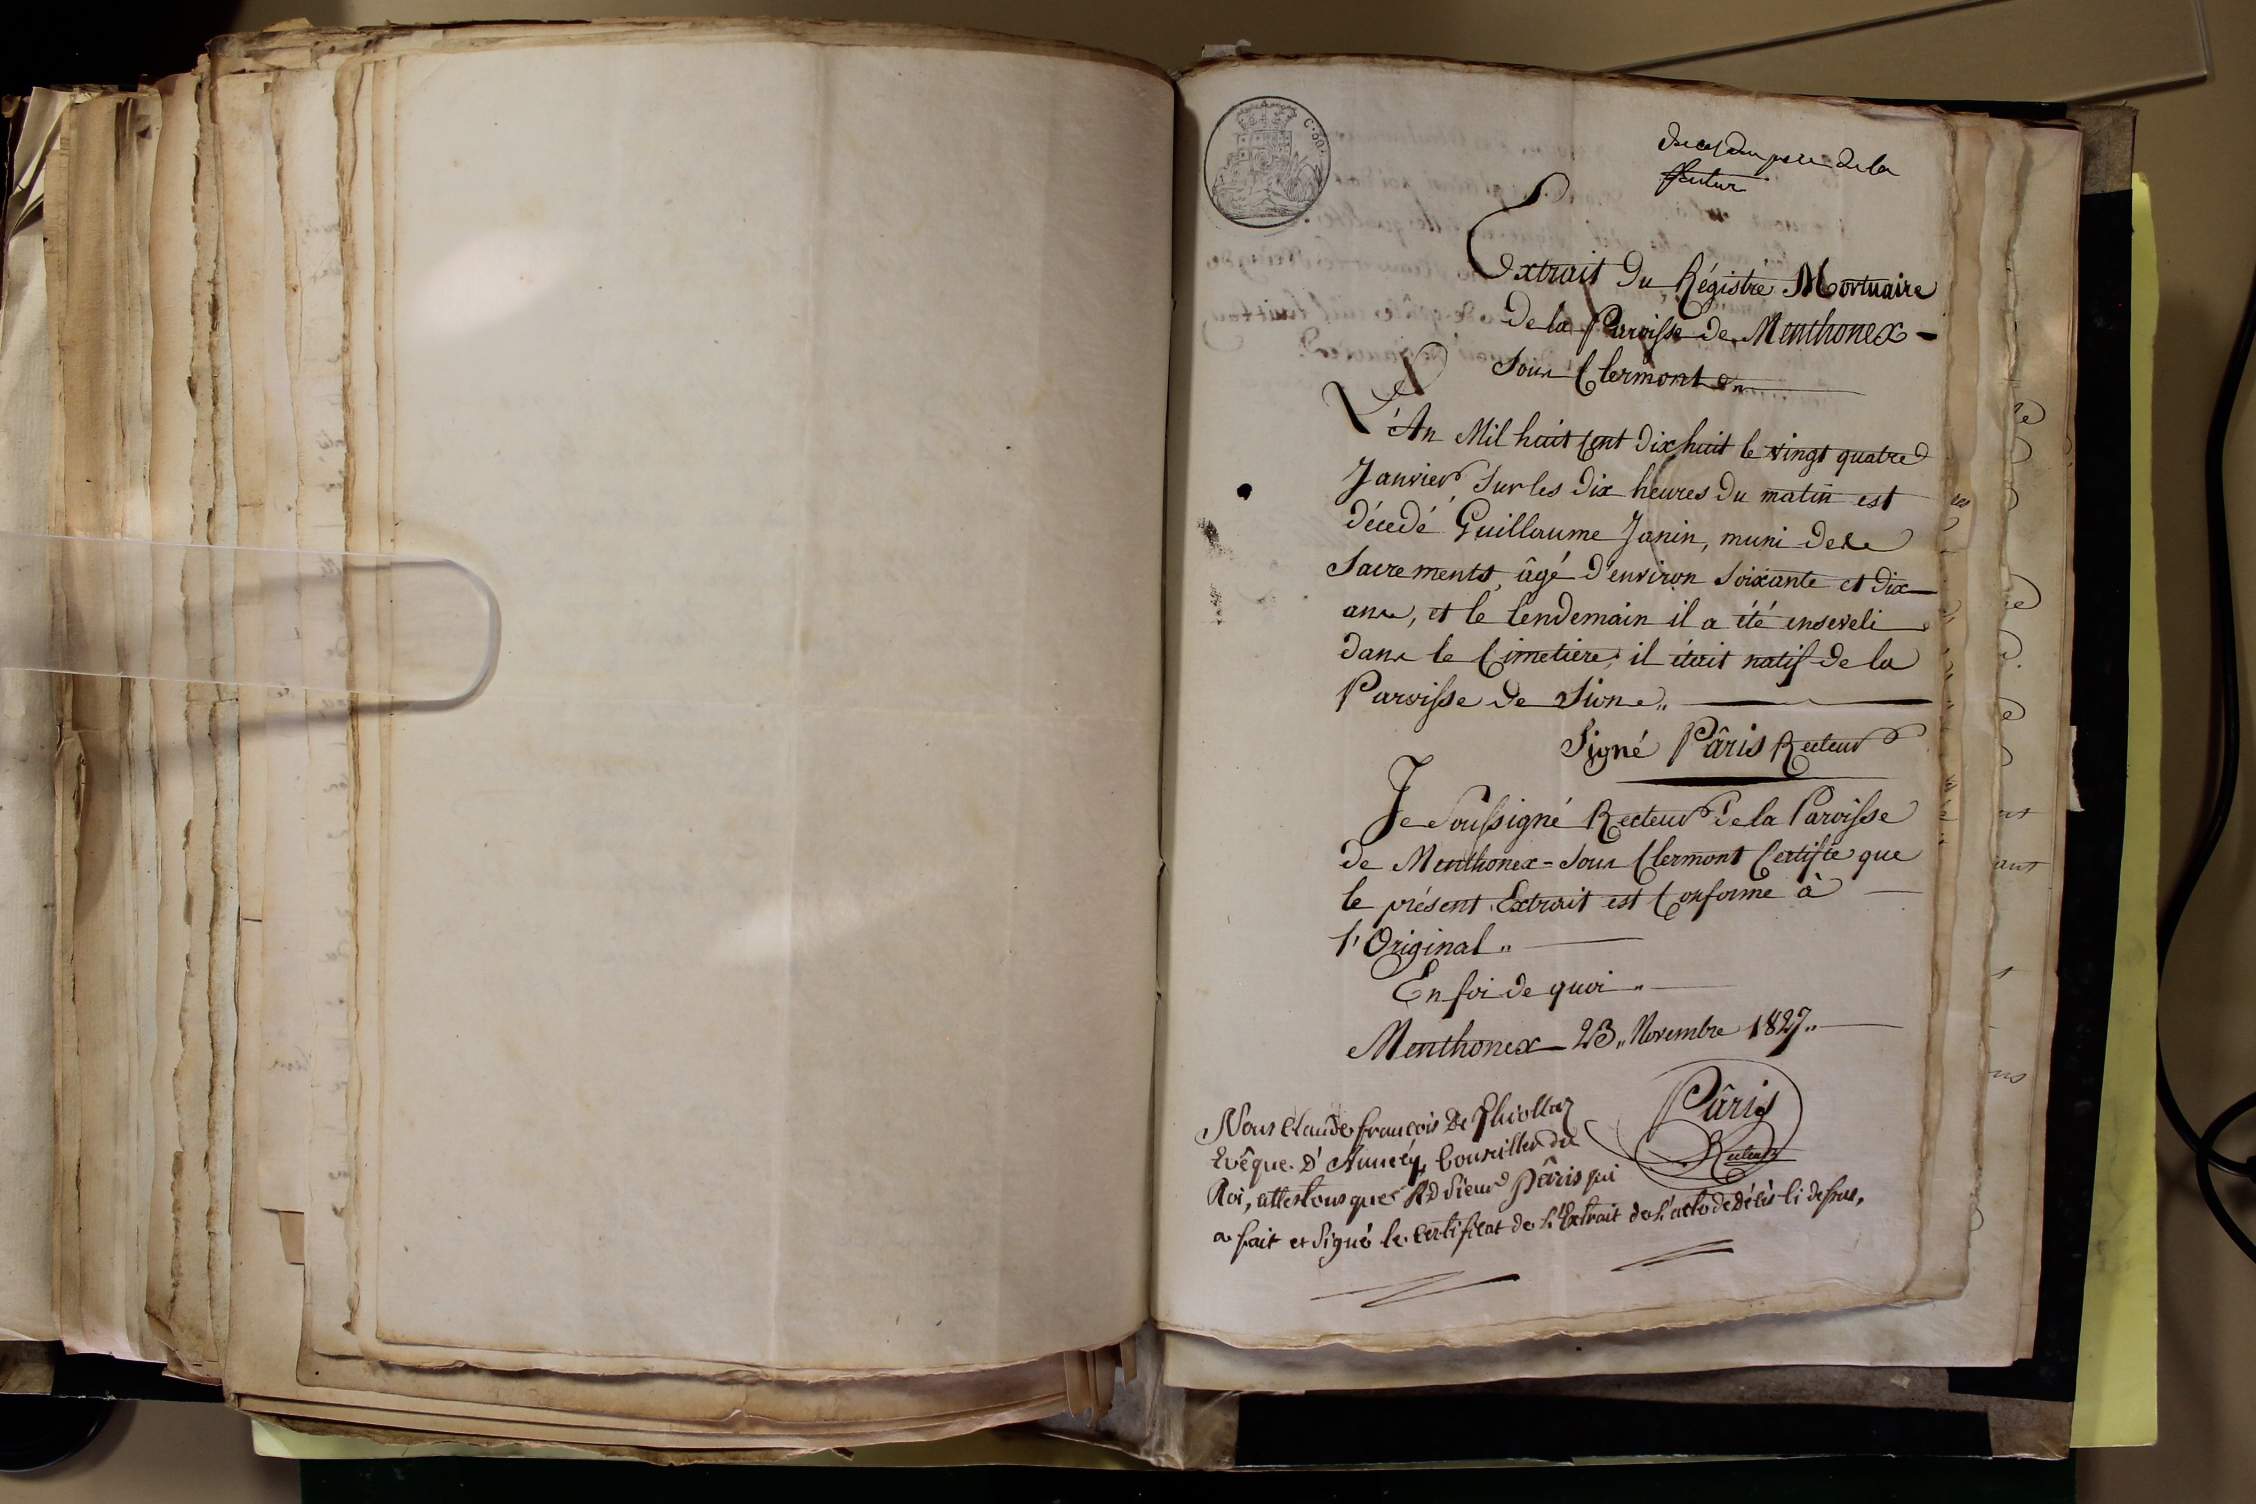 C. 60.
deces du pere de la
future
Extrait du Régistre Mortuaire
de la Paroisse de Menthonex-
Sous Clermont
L'An Mil huit Cent Dix huit le vingt quatre
Janvier Sur les Dix heures Du matin est
décedé Guillaume Janin, muni des
Sacrements, âgé d'environ Soixante et Dix
ans, et le lendemain il a été enseveli
dans le Cimetière; il était natif de la
Paroisse de Sion„
Signé Pâris Recteur
Je Soussigné Recteur de la Paroisse
de Menthonex-Sous Clermont Certifie que
le présent Extrait est Conforme à
l'Original„
En foi de quoi„
Menthonex 23„ Novembre 1827„
Pâris
Recteur
Nous Claude françois De Thiollaz
Evêque D'Annecy, Conseiller du
Roi, attestons que Rd Sieur Pâris qui
a fait et Signé le Certificat de l'Extrait de l'acte de Décès Ci dessus,